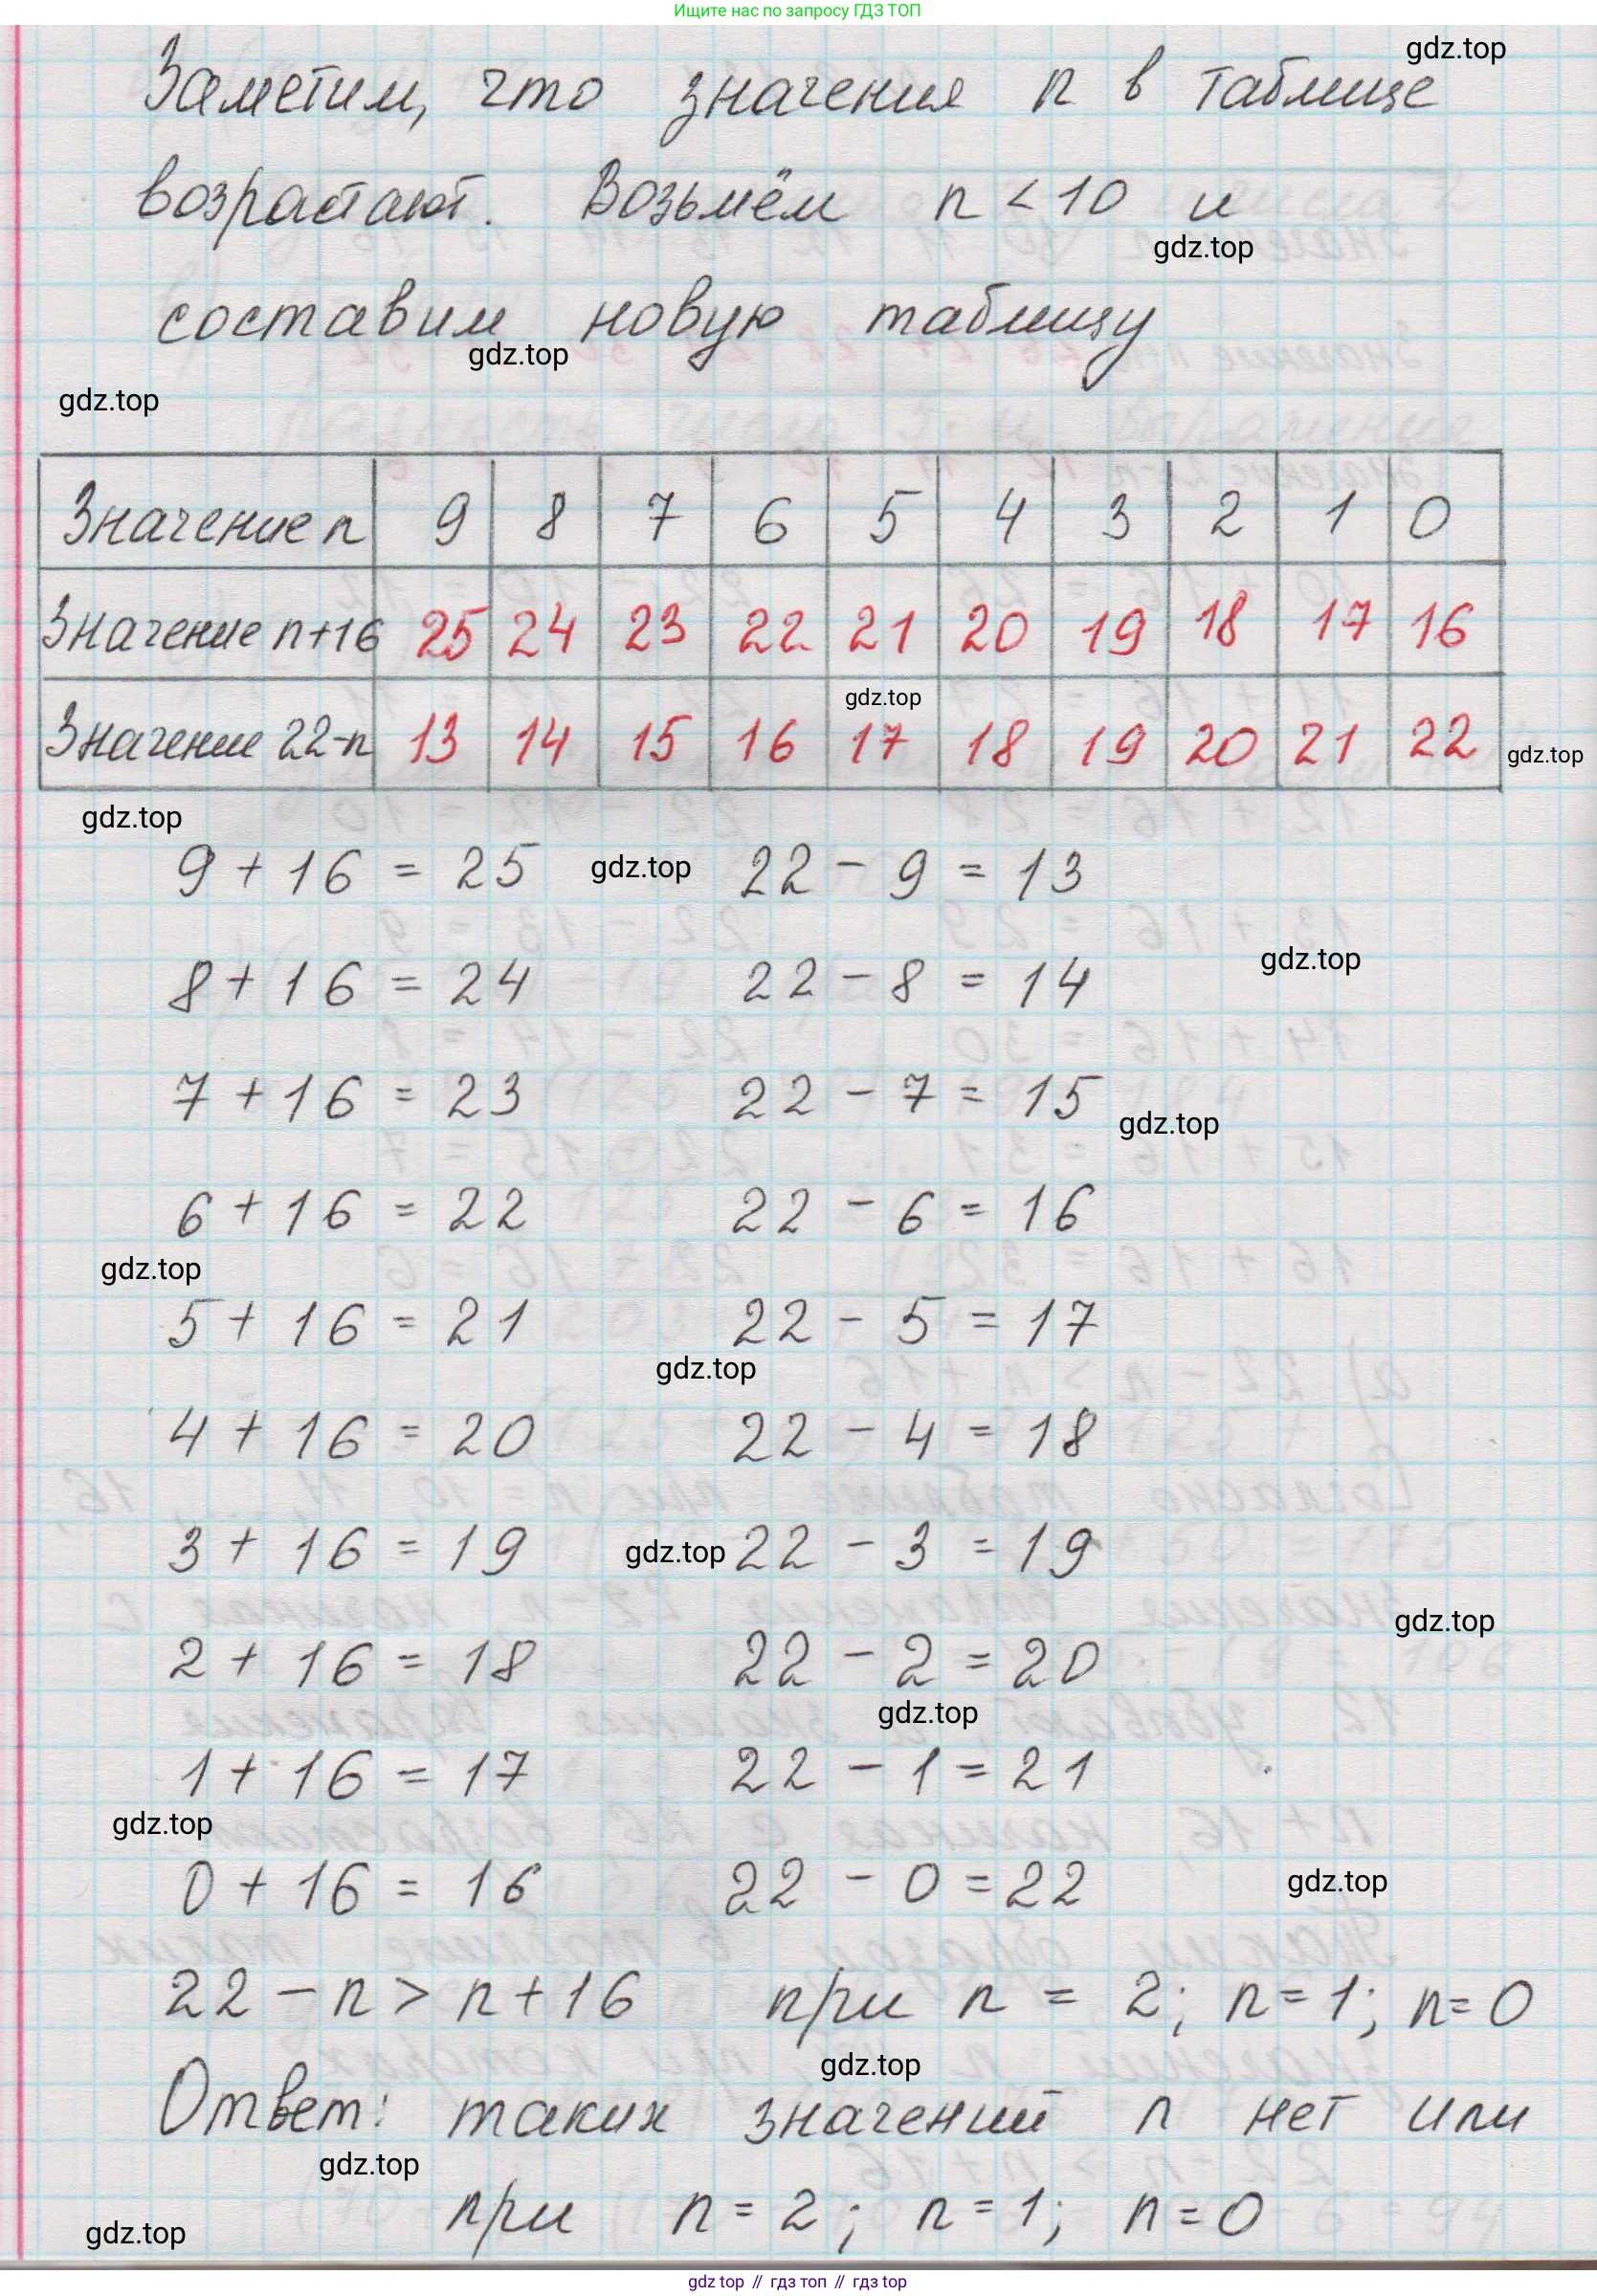 Ищите нас по запросу ГДЗ ТОП
gdz.top
Заметим, что значения n в таблице
возрастают. Возьмём n < 10 и
gdz.top
составим новую таблицу
gdz.top
gdz.top
Значение n 9 8 7 6 5 4 3 2 1 0
Значение n+16 25 24 23 22 21 20 19 18 17 16
gdz.top
Значение 22-n 13 14 15 16 17 18 19 20 21 22
gdz.top
gdz.top
9 + 16 = 25 gdz.top 22 - 9 = 13
gdz.top
8 + 16 = 24 22 - 8 = 14
7 + 16 = 23 22 - 7 = 15
gdz.top
6 + 16 = 22 22 - 6 = 16
gdz.top
5 + 16 = 21 22 - 5 = 17
gdz.top
4 + 16 = 20 22 - 4 = 18
3 + 16 = 19 gdz.top 22 - 3 = 19
gdz.top
2 + 16 = 18 22 - 2 = 20
gdz.top
1 + 16 = 17 22 - 1 = 21
gdz.top
0 + 16 = 16 22 - 0 = 22
gdz.top
22 - n > n + 16 при n = 2; n = 1; n = 0
gdz.top
Ответ: таких значений n нет или
gdz.top
при n = 2; n = 1; n = 0
gdz.top
gdz top // гдз топ // гдз top